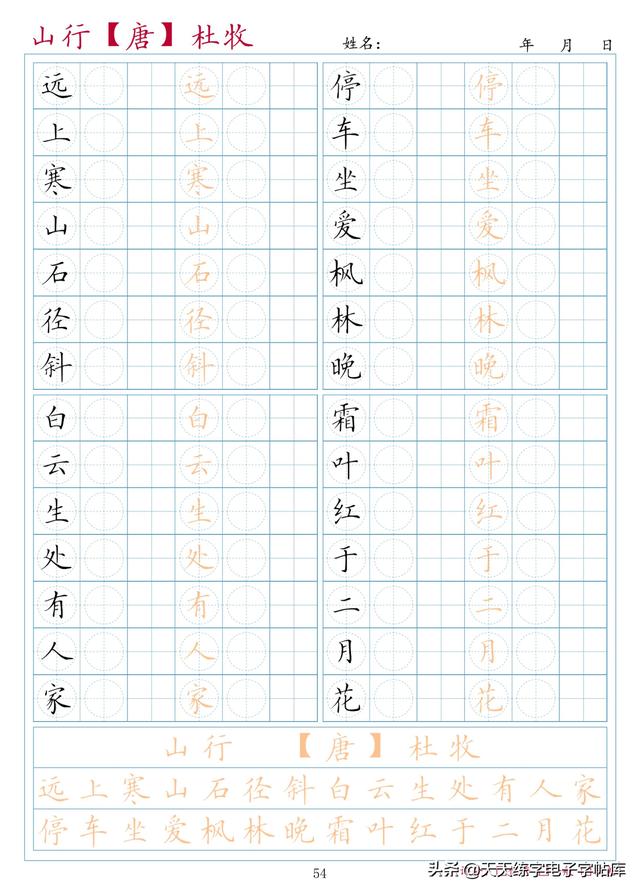 山行【唐】杜牧 姓名: 年 月 日
远 远 停 停
上 上 车 车
寒 寒 坐 坐
山 山 爱 爱
石 石 枫 枫
径 径 林 林
斜 斜 晚 晚
白 白 霜 霜
云 云 叶 叶
生 生 红 红
处 处 于 于
有 有 二 二
人 人 月 月
家 家 花 花
山行 【唐】杜牧
远上寒山石径斜白云生处有人家
停车坐爱枫林晚霜叶红于二月花
54
头条@天天练字电子字帖库